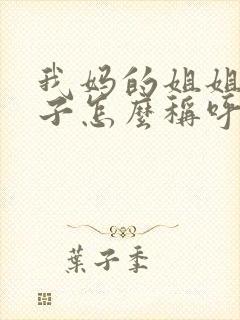 我妈的姐姐
子怎麼稱呼
葉子季